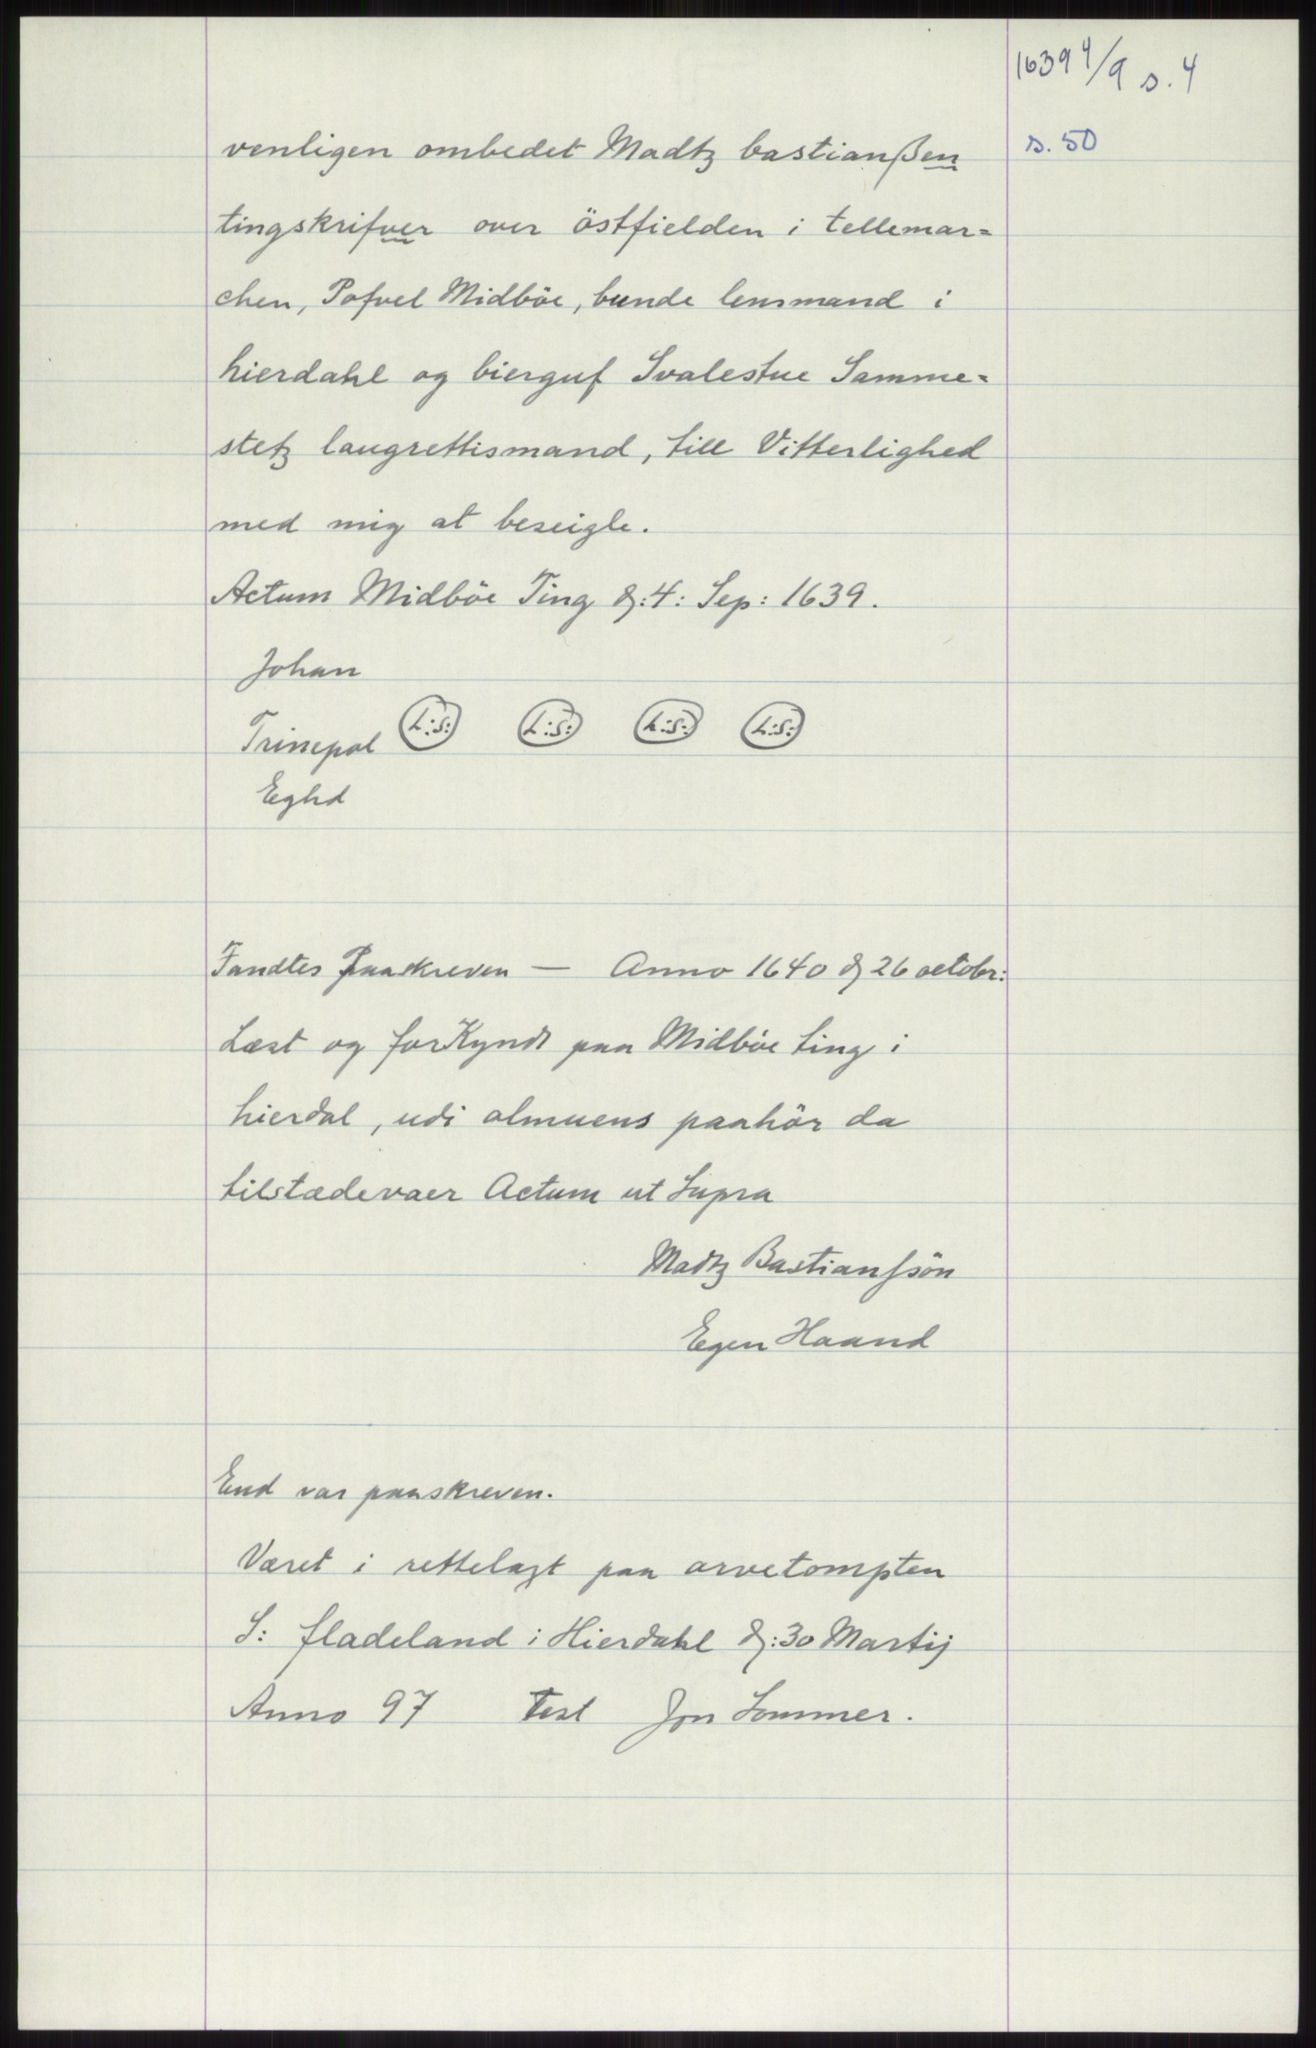 1639 4/9 s. 4
s. 50
venligen ombedet Madtz bastianßen
tingskrifver over östfielden i tellemar=
chen, Pofvel Midböe, bunde lensmand i
hierdahl og bierguf Svalestue Samme=
stetz laugrettismand, till Vitterlighed
med mig at beseigle.
Actum Midböe Ting d: 4: Sep: 1639.
Johan
Trinepol L:S: L:S: L:S: L:S:
Eghd
Fandtes Paaskreven — Anno 1640 d 26 octobr:
Læst og forKyndt paa Midböe ting i
hierdal, udi almuens paahör da
tilstædevaer Actum ut Supra
Madtz Bastianssön
Egen Haand
End var paaskreven.
Været i rettelagt paa arvetompten
S: fladeland i Hierdahl d: 30 Martij
Anno 97 Test Jon Sommer.